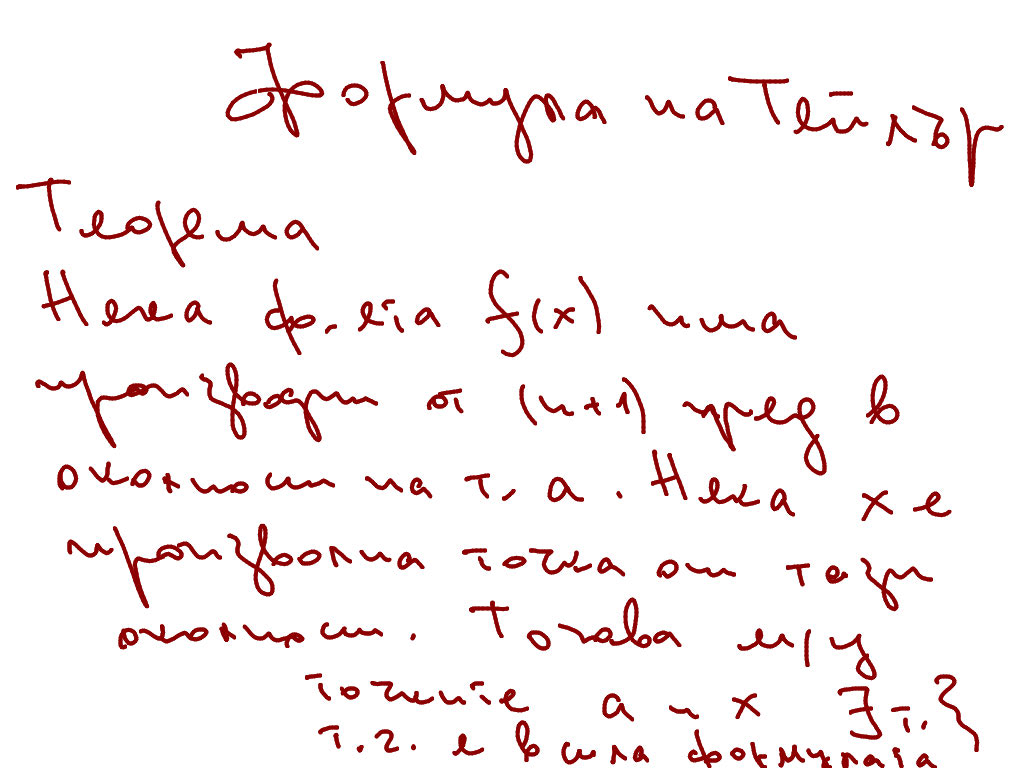 Формула на Тейлър
Теорема
Нека ф-ция f(x) има
производн от (n+1) ред в
околност на т. a. Нека x е
произволна точка от тази
околност. Тогава м/у
точките a и x ∃ т. ξ
т.ч. е в сила формулата